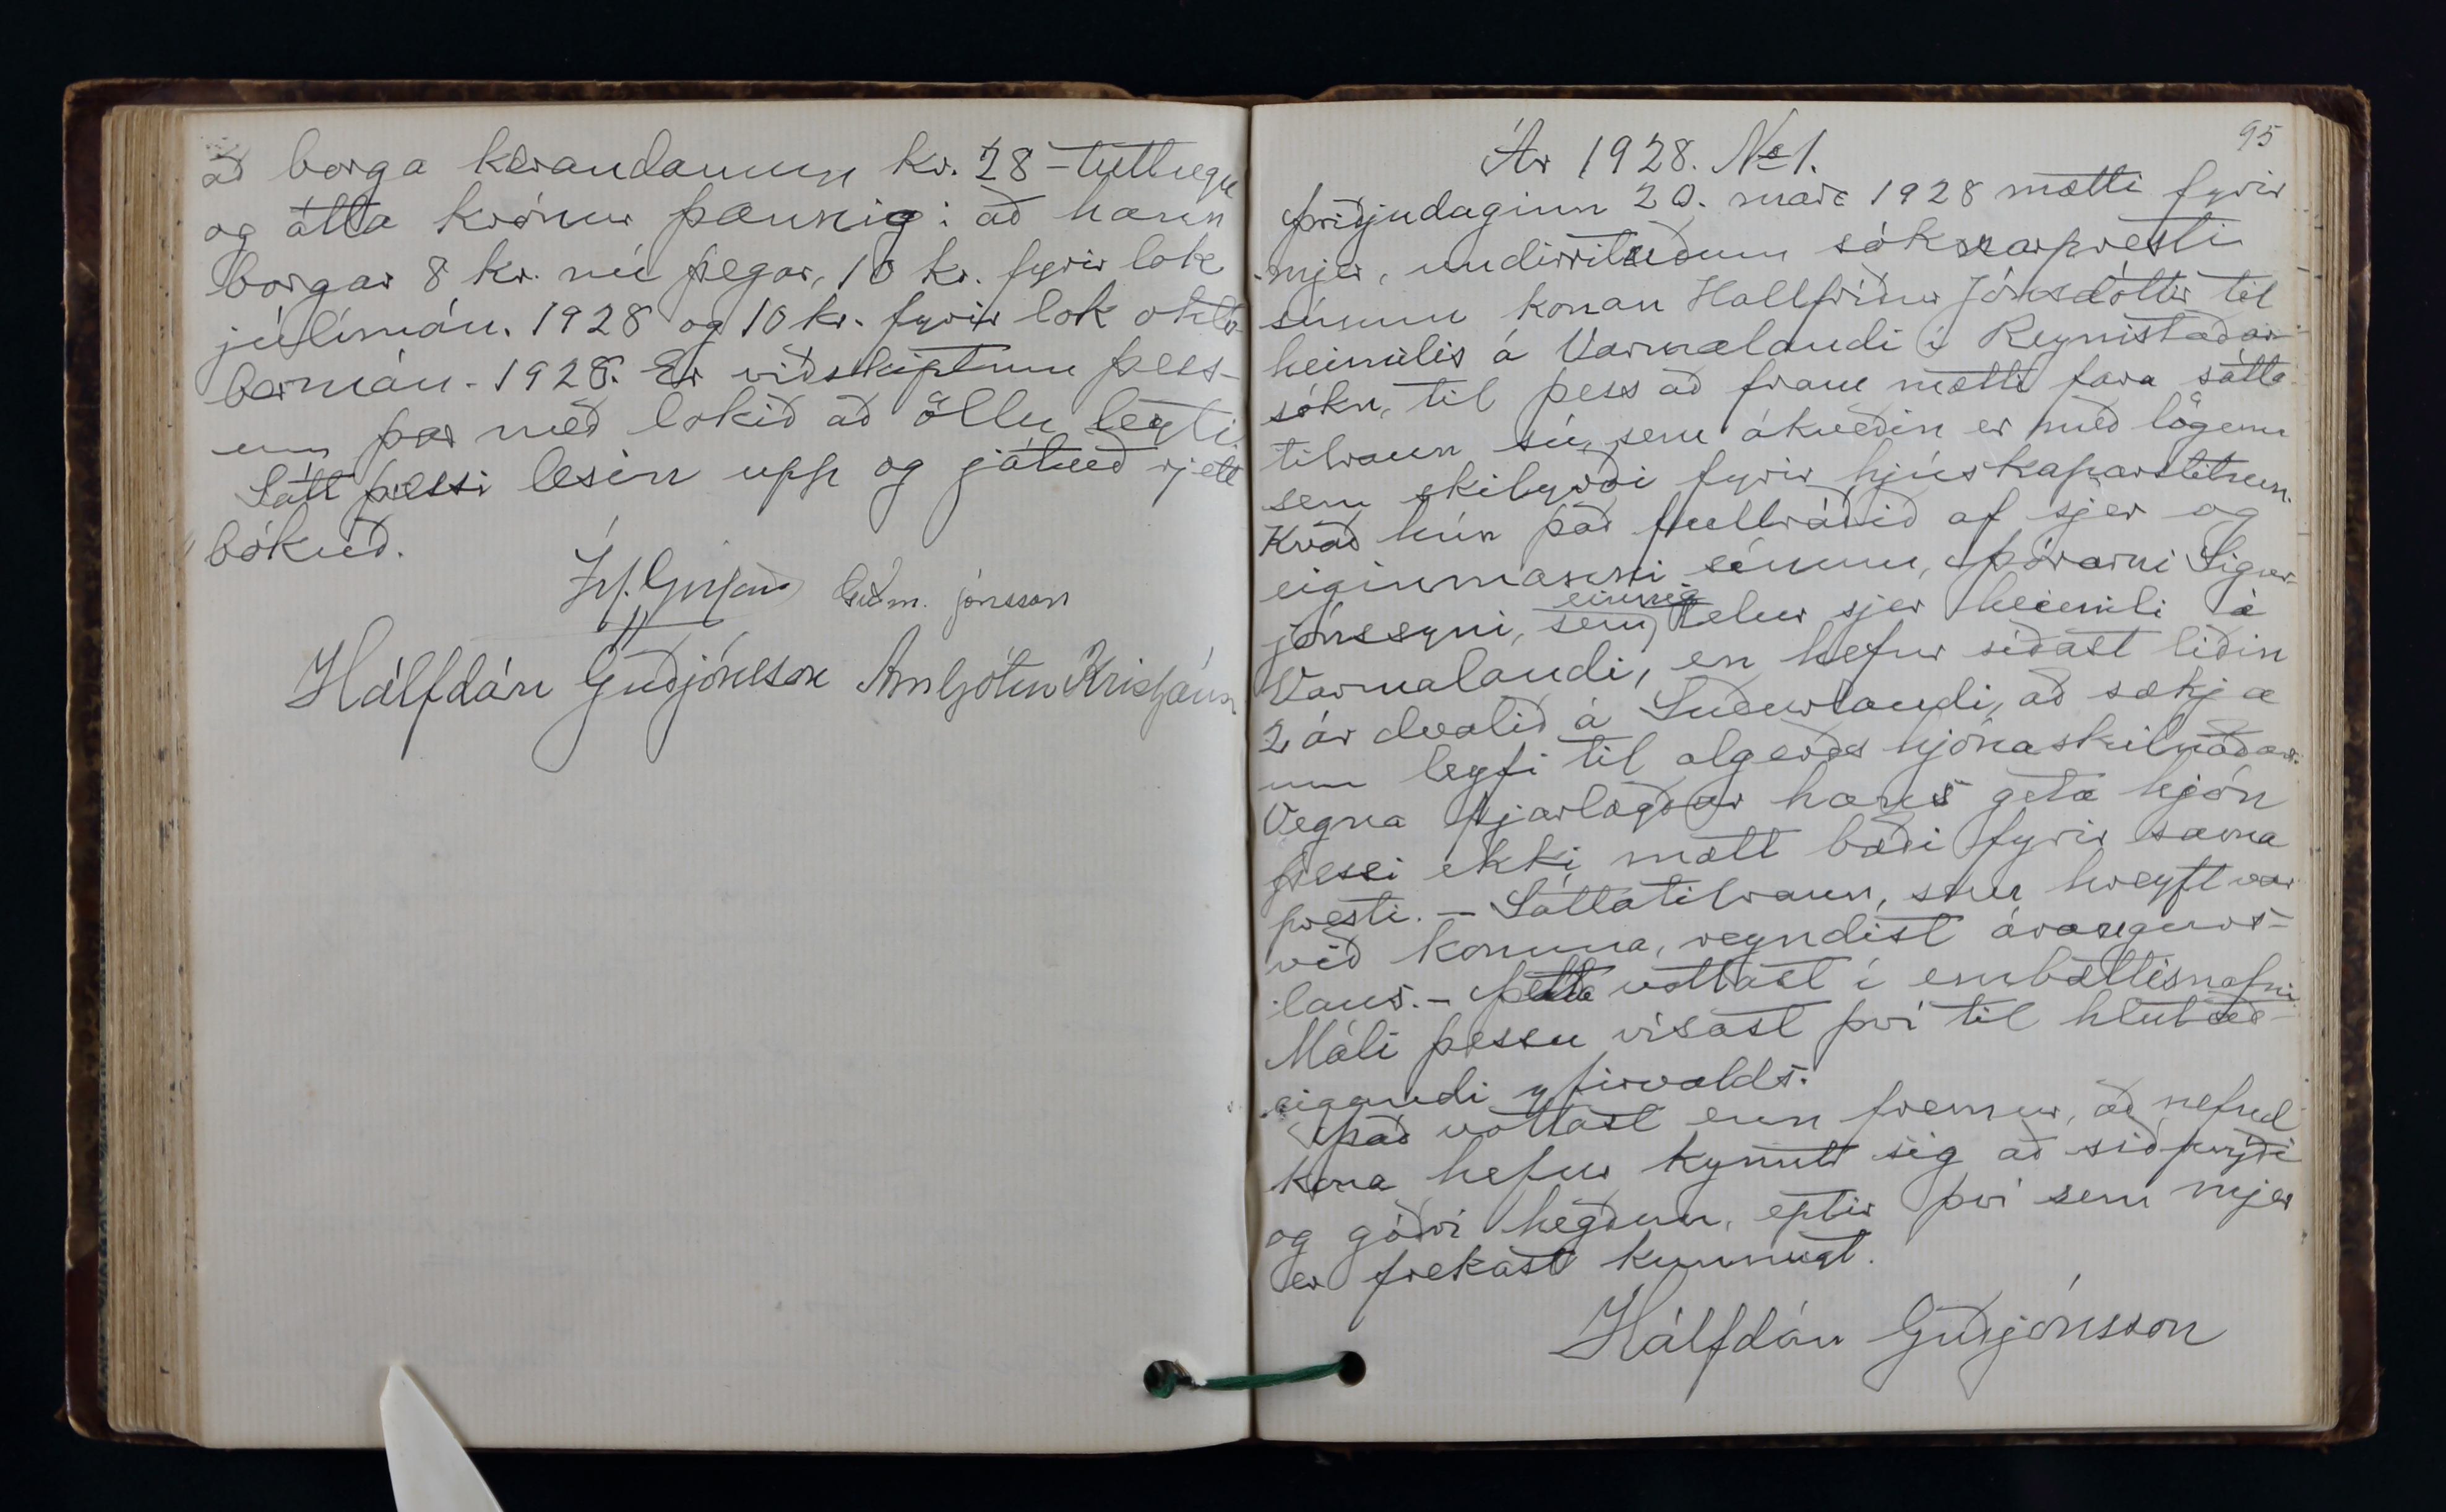 að borga kærandanum kr. 28 - tuttugu
og átta krónur þannig: að hann
borgar 8 kr. nú þegar, 10 kr. fyrir lok
júlímán. 1928 og 10 kr. fyrir lok októ-
bermán. 1928. Er viðskiptum þess-
um þar með lokið að öllu leyti.
Sátt þessi lesin upp og játuð rjett
bókuð.
Guðm. Jónsson
Hálfdán Guðjónsson Arnljótur Kristjánsson
95
Ár 1928. No 1.
Þriðjudaginn 20. mars 1928 mætti fyrir
mjer, undirrituðum sóknarpresti
sínum konan Hallfríður Jónsdóttir til
heimilis á Varmalandi í Reynistaðar-
sókn, til þess að fram mætti fara sátta-
tilraun sú, sem ákveðin er með lögum
sem skilyrði fyrir hjúskaparslitum.
Kvað hún það fullráðið af sjer og
eiginmanni sínum, Þórarni Sigur-
jónssyni, sem einnig telur sjer heimili á
Varmalandi, en hefur síðast liðin
2 ár dvalið á Suðurlandi, að sækja
um leyfi til algerðs hjónaskilnaðar.
Vegna fjarlægðar hans geta hjón
þessi ekki mætt bæði fyrir sama
presti. - Sáttatilraun, sem hreyft var
við konuna, reyndist árangurs-
laus. - Þetta vottast í embættisnafni.
Máli þessu vísast því til hlutað-
eigandi yfirvalds.
Það vottast enn fremur, að nefnd
kona hefur kynnt sig að siðprýði
og góðri hegðun, eptir því sem mjer
er frekast kunnugt.
Hálfdán Guðjónsson